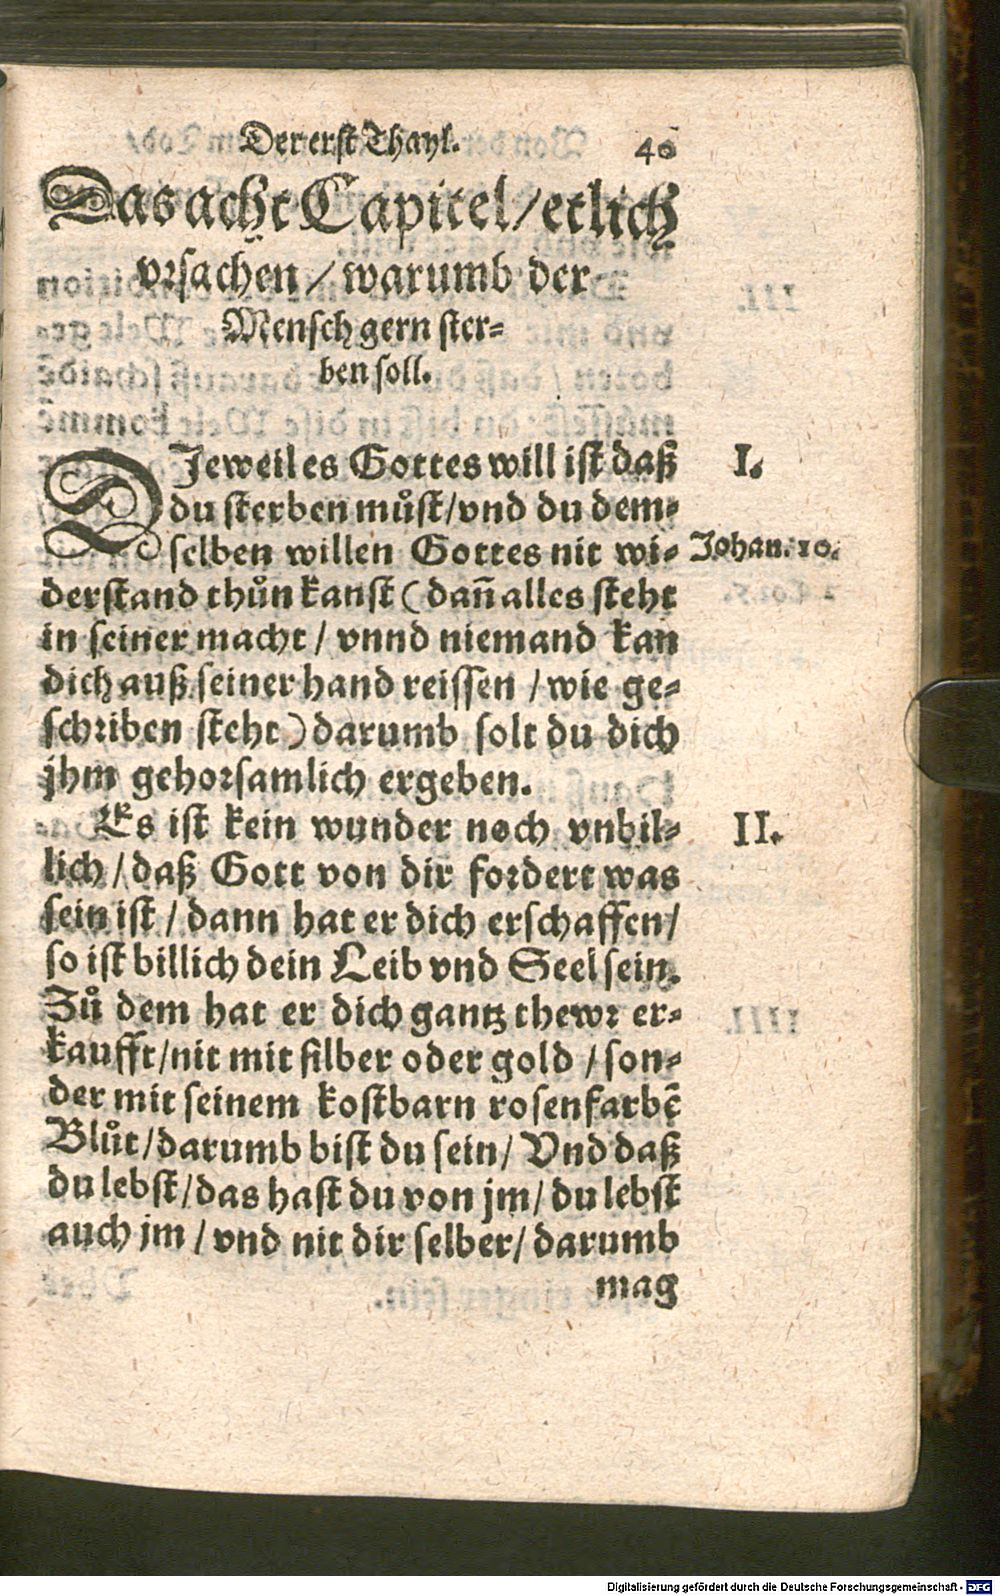 Der erst Thayl. 40
Das acht Capitel/etlich
vrsachen / warumb der
Mensch gern ster-
ben soll.
DJeweil es Gottes will ist daß I.
du sterben můst/vnd du dem-
selben willen Gottes nit wi- Johan. 10.
derstand thůn kanst (dañ alles steht
in seiner macht / vnnd niemand kan
dich auß seiner hand reissen / wie ge-
schriben steht) darumb solt du dich
jhm gehorsamlich ergeben.
Es ist kein wunder noch vnbil- II.
lich / daß Gott von dir fordert was
sein ist / dann hat er dich erschaffen/
so ist billich dein Leib vnd Seel sein.
Zů dem hat er dich gantz thewr er-
kaufft/nit mit silber oder gold / son-
der mit seinem kostbarn rosenfarbẽ
Blůt/darumb bist du sein/ Vnd daß
du lebst/das hast du von jm/ du lebst
auch jm / vnd nit dir selber/ darumb
mag
Digitalisierung gefördert durch die Deutsche Forschungsgemeinschaft - DFG